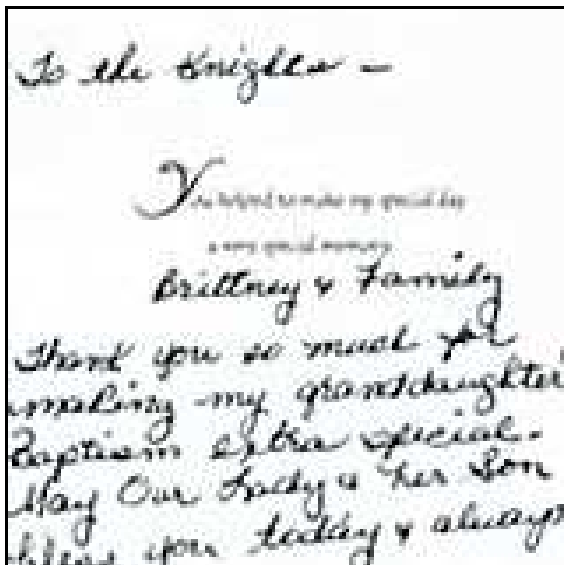 To the Knights –
You helped to make my special day
a very special memory
Brittney & Family
Thank you so much for
making my granddaughter's
Baptism extra special.
May Our Lady & her Son
bless you today & always